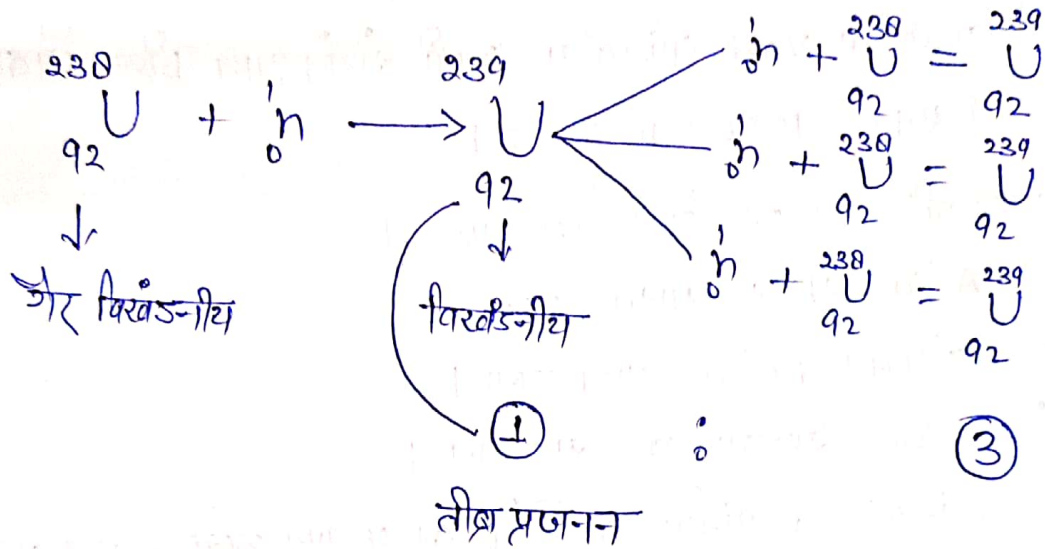 ²³⁸₉₂U + ¹₀n ⟶ ²³⁹₉₂U
¹₀n + ²³⁸₉₂U = ²³⁹₉₂U
¹₀n + ²³⁸₉₂U = ²³⁹₉₂U
¹₀n + ²³⁸₉₂U = ²³⁹₉₂U
↓ ↓
गैर विखंडनीय विखंडनीय
① : ③
तीब्र प्रजनन